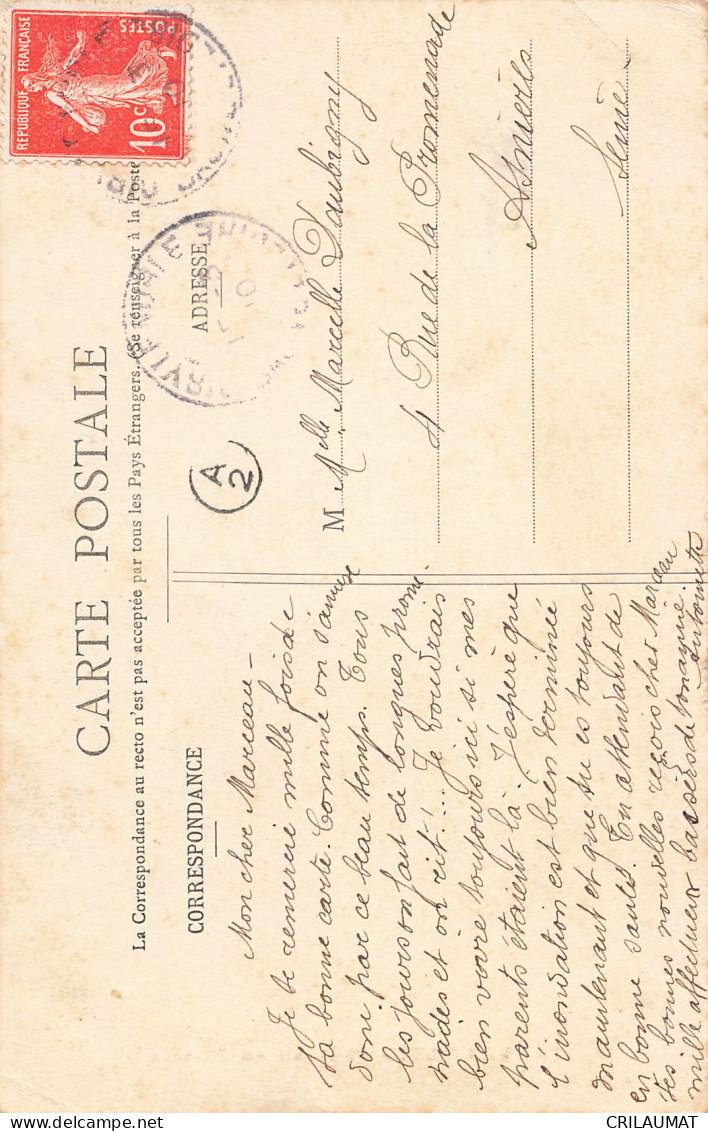 CARTE POSTALE
La Correspondance au recto n'est pas acceptée par tous les Pays Étrangers. (Se renseigner à la Poste
CORRESPONDANCE
Mon cher Marceau –
Je te remercie mille fois de
ta bonne carte. Comme on s'amuse
donc par ce beau temps. Tous
les jours on fait de longues prome-
nades et on rit!... Je voudrais
bien vivre toujours ici si mes
parents étaient là. J'espère que
l'inondation est bien terminée
maintenant et que tu es toujours
en bonne santé. En attendant de
tes bonnes nouvelles reçois cher Marceau
mille affectueux baisers de ta
Antoinette
ADRESSE
M Melle Marcelle Daubigny
4 Rue de la Promenade
Asnières
Seine
A2
REPUBLIQUE FRANÇAISE
POSTES
10c
CRILAUMAT